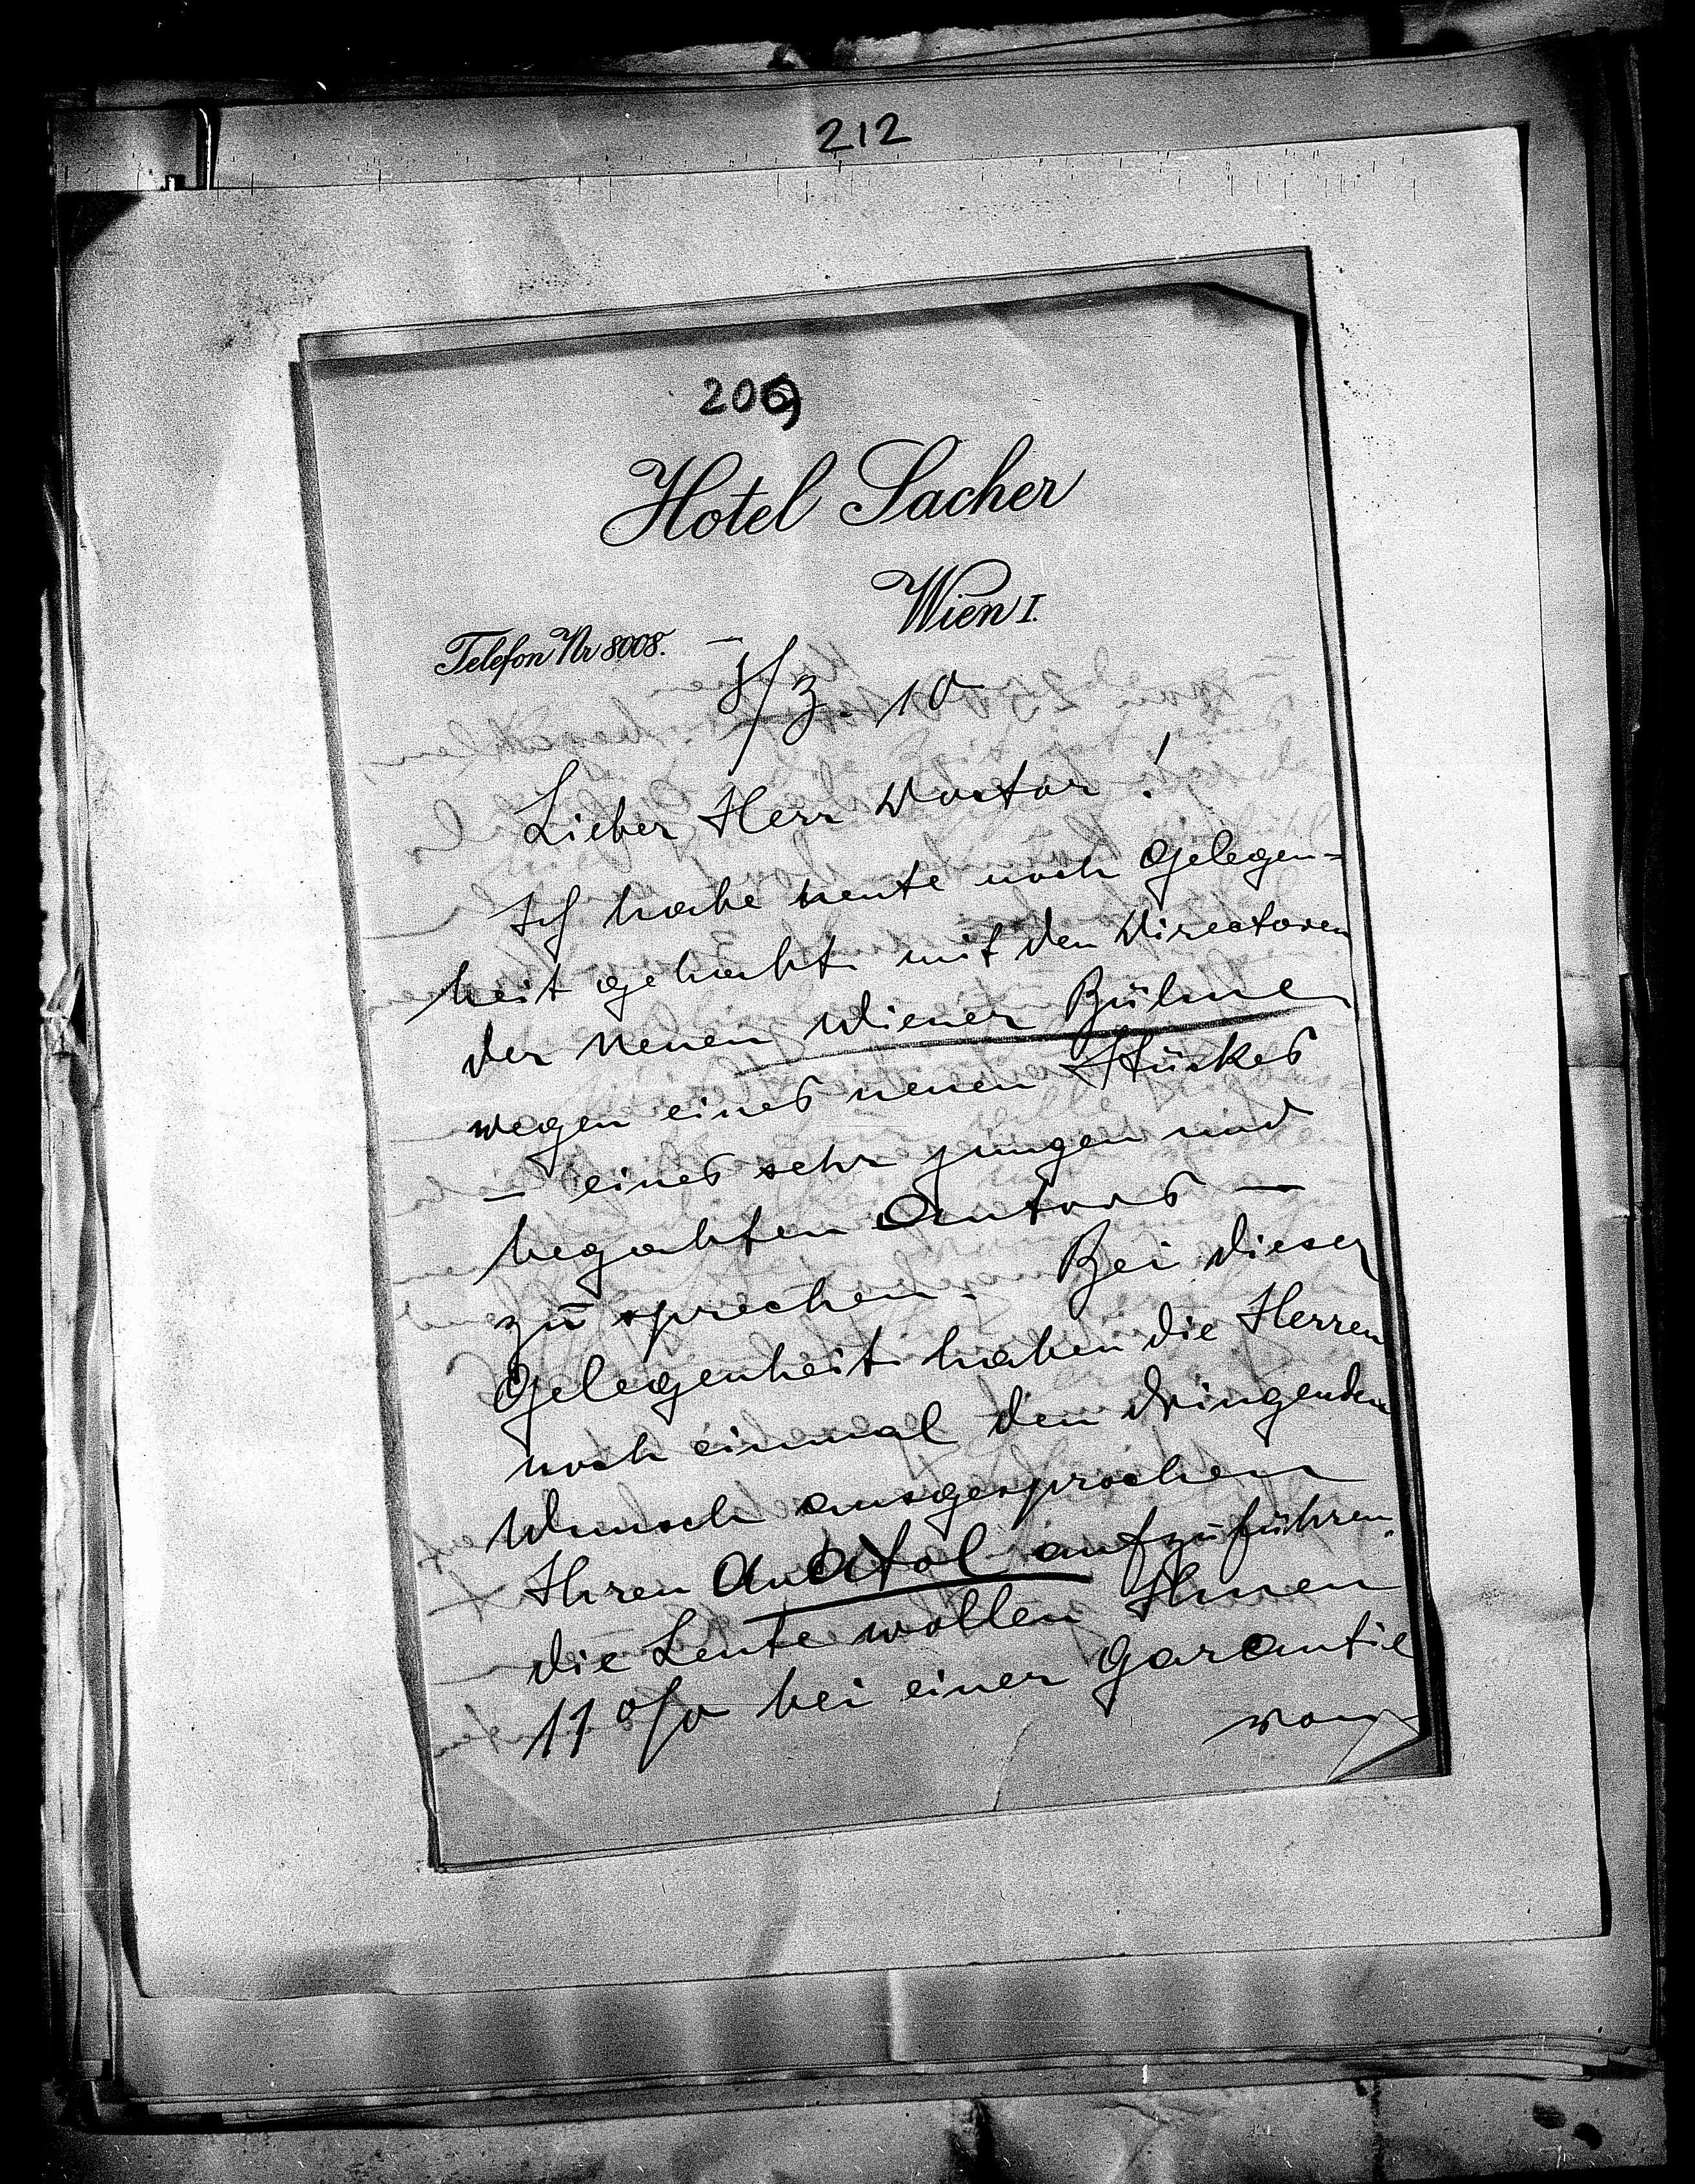 212
206)
Hotel Sacher
Wien I.
Telefon Nr 8008.
8/3. 10
Lieber Herr Doctor!
Ich habe heute noch Gelegen=
heit gehabt mit den Directoren
der neuen Wiener Bühne
wegen eines neuen Stückes
– eines sehr jungen und
begabten Autors –
zu sprechen. Bei dieser
Gelegenheit haben die Herren
noch einmal den dringenden
Wunsch ausgesprochen
Ihren Anatol aufzuführen.
die Leute wollen Ihnen
11 % bei einer Garantie
von